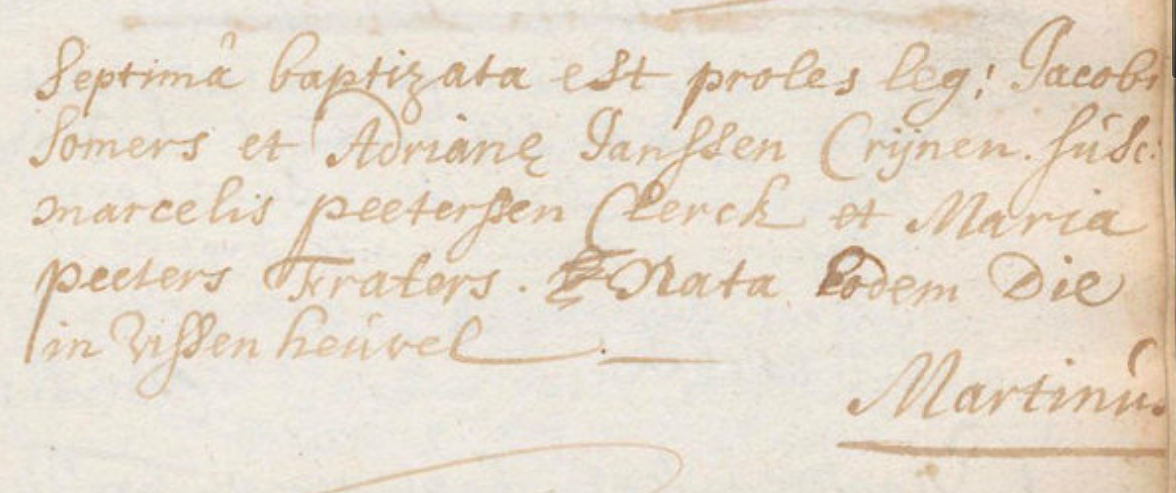 Septimâ baptizata est proles leg: Jacobi
Somers et Adrianę Janssen Crijnen. susc:
marcelis peeterssen Clerck et Maria
peeters Fraters. Nata Eodem Die
in Vissenheuvel
Martinus